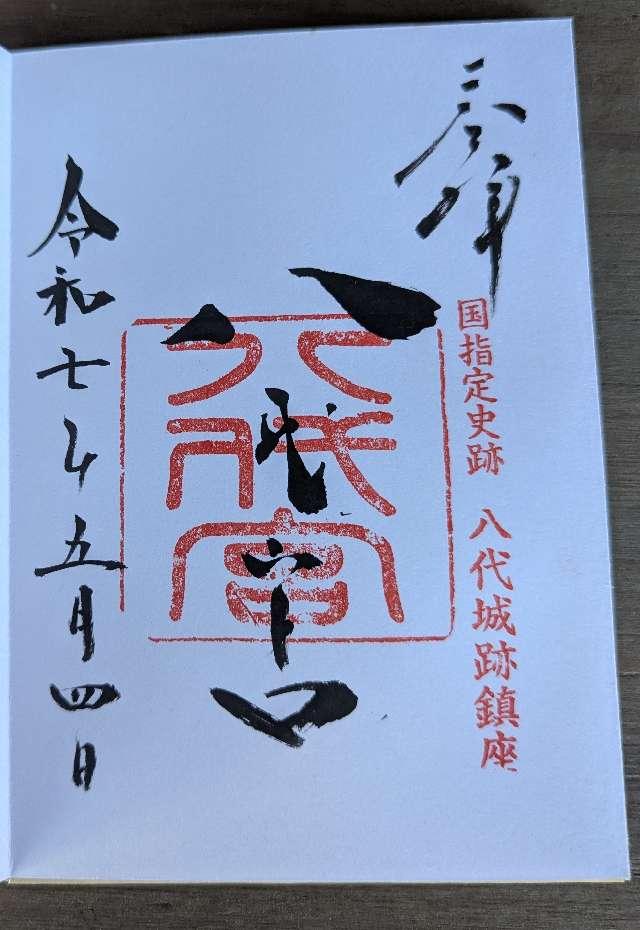 奉拝
国指定史跡 八代城跡鎮座
八代宮
八代宮
令和七年五月四日